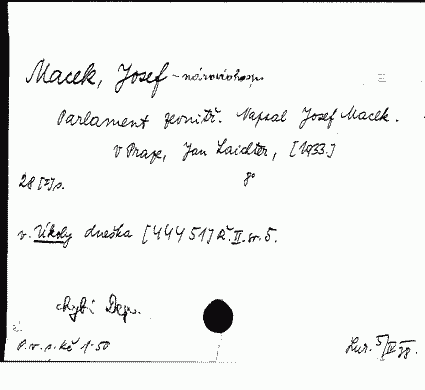 Macek, Josef - národohosp.
Parlament zevnitř. Napsal Josef Macek.
V Praze, Jan Laichter, [1933.]
28 [I] s. 8°
v. Úkoly dneška [44451] Ř. II. sv. 5.
chybí Dep.
P. v. s. Kč 1·50